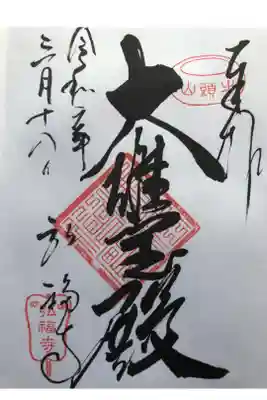 奉拝
牛頭山
大雄宝殿
令和二年
三月十八日
弘福寺
弘福寺